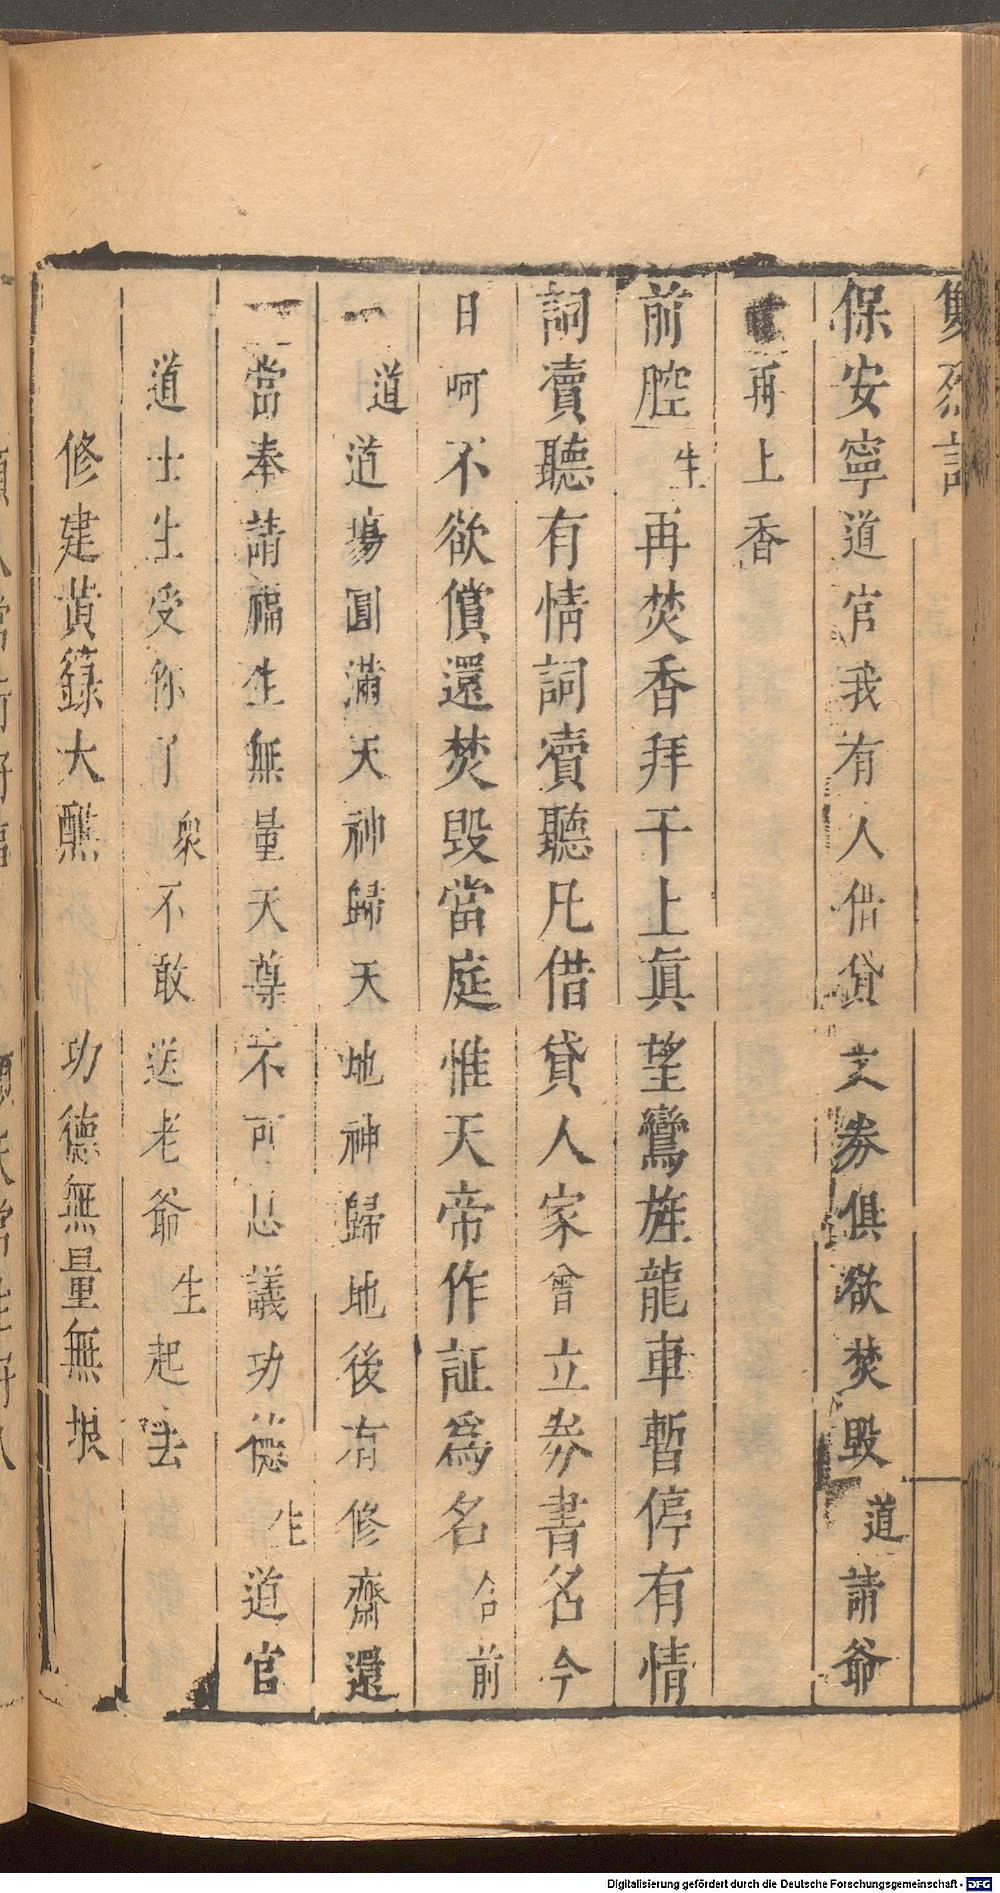 保安寧道官我有人借貸文券俱欲焚毀道請爺
再上香
前腔生再焚香拜干上眞望鸞旌龍車暫停有情
詞賣聽有情詞賣聽凡借貸人家曾立券書名今
日呵不欲償還焚毀當庭惟天帝作証爲名合前
道道場圓滿天神歸天地神歸地後有修齋還
一當奉請福生無量天尊不可思議功德生道官
道士生受你了衆不敢送老爺生起去
修建黃籙大醮 功德無量無垠
Digitalisierung gefördert durch die Deutsche Forschungsgemeinschaft - DFG